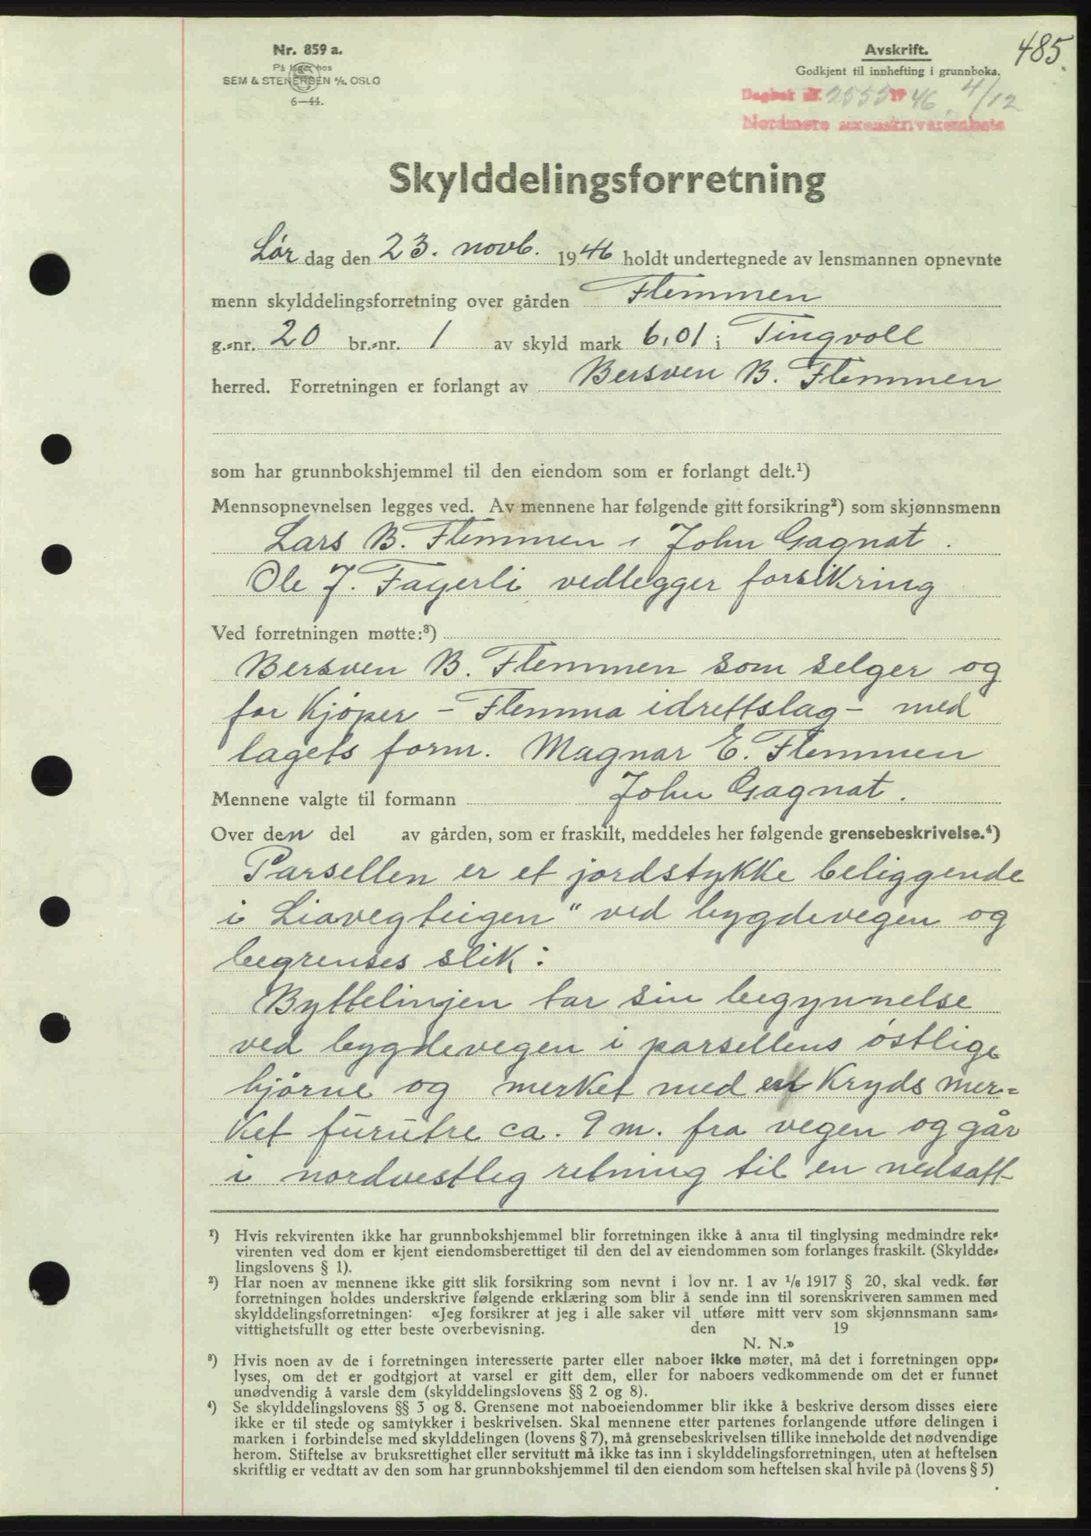 485.
Nr. 859 a.
På lager hos
SEM & STENERSEN A/S, OSLO
6—44.
Avskrift.
Godkjent til innhefting i grunnboka.
Dagbok nr. 2555 1946 4/12
Nordmøre sorenskriverembete
Skylddelingsforretning
Lør dag den 23. novb. 1946 holdt undertegnede av lensmannen opnevnte
menn skylddelingsforretning over gården Flemmen
g.-nr. 20 br.-nr. 1 av skyld mark 6,01 i Tingvoll
herred. Forretningen er forlangt av Bersven B. Flemmen
som har grunnbokshjemmel til den eiendom som er forlangt delt.¹)
Mennsopnevnelsen legges ved. Av mennene har følgende gitt forsikring²) som skjønnsmenn
Lars B. Flemmen, John Gagnat.
Ole J. Fagerli vedlegger forsikring
Ved forretningen møtte:³)
Bersven B. Flemmen som selger og
for Kjøper - Flemma idrettslag - med
lagets form. Magnar E. Flemmen
Mennene valgte til formann John Gagnat.
Over den del av gården, som er fraskilt, meddeles her følgende grensebeskrivelse.⁴)
Parsellen er et jordstykke beliggende
i Liavegteigen" ved bygdevegen og
begrenses slik:
Byttelinjen tar sin begynnelse
ved bygdevegen i parsellens østlige
hjørne og merket med en Kryds mer=
ket furutre ca. 9 m. fra vegen og går
i nordvestlig retning til en nedsatt
¹) Hvis rekvirenten ikke har grunnbokshjemmel blir forretningen ikke å anta til tinglysing medmindre rek-
virenten ved dom er kjent eiendomsberettiget til den del av eiendommen som forlanges fraskilt. (Skyldde-
lingslovens § 1).
²) Har noen av mennene ikke gitt slik forsikring som nevnt i lov nr. 1 av 1/6 1917 § 20, skal vedk. før
forretningen holdes underskrive følgende erklæring som blir å sende inn til sorenskriveren sammen med
skylddelingsforretningen: «Jeg forsikrer at jeg i alle saker vil utføre mitt verv som skjønnsmann sam-
vittighetsfullt og etter beste overbevisning. den 19
N. N.»
³) Hvis noen av de i forretningen interesserte parter eller naboer ikke møter, må det i forretningen opp-
lyses, om det er godtgjort at varsel er gitt dem, eller for naboers vedkommende om det er funnet
unødvendig å varsle dem (skylddelingslovens §§ 2 og 8).
⁴) Se skylddelingslovens §§ 3 og 8. Grensene mot naboeiendommer blir ikke å beskrive dersom disses eiere
ikke er til stede og samtykker i beskrivelsen. Skal mennene etter partenes forlangende utføre delingen i
marken i forbindelse med skylddelingen (lovens § 7), må grensebeskrivelsen tillike inneholde det nødvendige
herom. Stiftelse av bruksrettighet eller servitutt må ikke tas inn i skylddelingsforretningen, uten at heftelsen
skriftlig er vedtatt av den som har grunnbokshjemmel til den eiendom som heftelsen skal hvile på (lovens § 5)